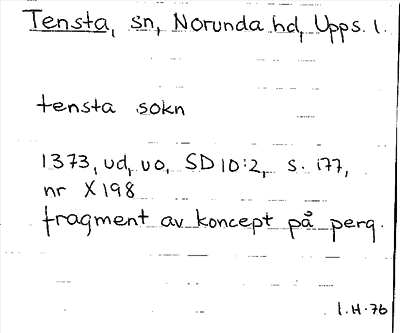 Tensta, sn, Norunda hd, Upps. l.
tensta sokn
1373, ud, uo, SD 10:2, s. 177,
nr X198
fragment av koncept på perg.
I.H-76